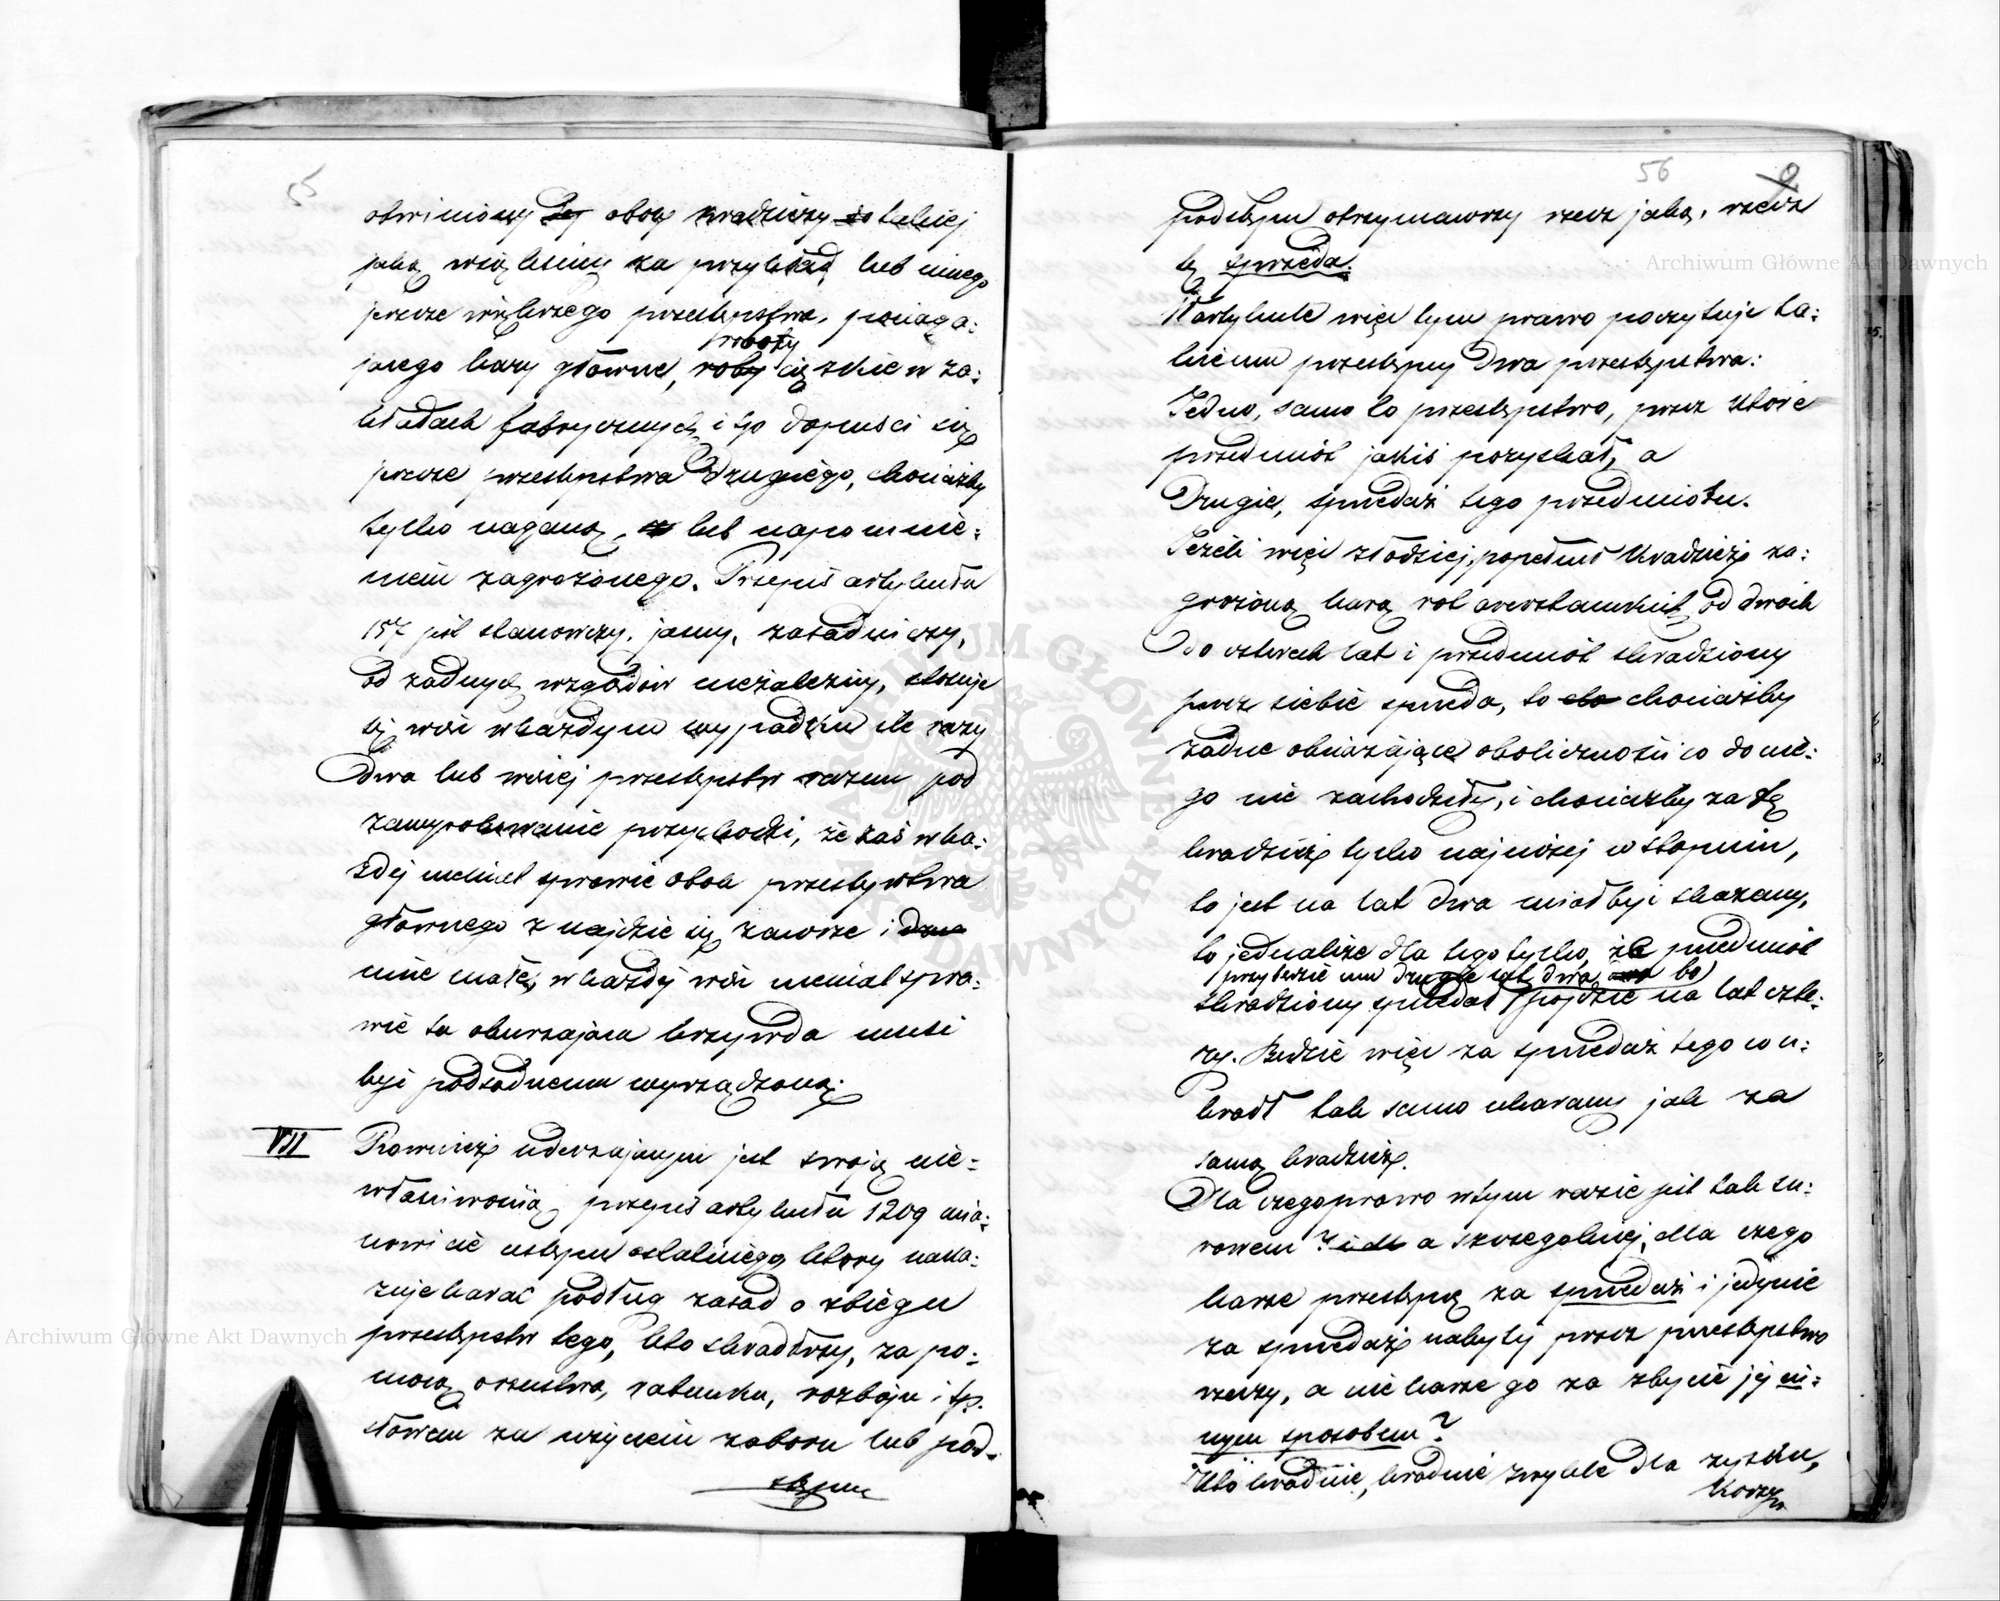 55
obwiniony ~~tej~~ obok kradzieży ~~to~~ takiej
jaką wzięliśmy za przykład, lub innego
przeze większego przestępstwa, pociąga:
jącego kary główne, ~~roby~~ roboty ciężkie w za:
kładach fabrycznych, i tp dopuści się
przeze przestępstwa drugiego, chociażby
tylko naganą, lub napomnie:
niem zagrożonego. Przepis artykułu
157 jest stanowczy, jasny, zasadniczy,
od żadnych względów niezależny, stosuje
się więc w każdym wypadku ile razy
dwa lub więcej przestępstw razem pod
zawyrokowanie przychodzi, że zaś w ka:
żdej niemal sprawie obok przestępstwa
głównego znajdzie się zawsze i
inne małe, w każdej więc niemal spra:
wie ta oburzająca krzywda musi
być podsądnemu wyrządzoną.
VII Również uderzającym jest swoją nie:
właściwością przepis artykułu 1209 mia:
nowicie ustępu ostatniego, który naka:
zuje karać podług zasad o zbiegu
przestępstw tego, kto skradłszy, za po:
mocą oszustwa, rabunku, rozboju i tp.
słowem za użyciem zaboru lub pod-
stępu
56
podstępu otrzymawszy rzecz jaką, rzecz
tę sprzeda.
W artykule więc tym prawo poczytuje ta:
kiemu przestępcy dwa przestępstwa:
Jedno, samo to przestępstwo, przez które
przedmiot jakiś pozyskał, a
Drugie, sprzedaż tego przedmiotu.
Jeżeli więc złodziej, popełnił kradzież za:
grożoną karą rot aresztanckich od dwóch
do czterech lat i przedmiot skradziony
przez siebie sprzeda, to ~~cho~~ chociażby
żadne obciążające okoliczności co do nie:
go nie zachodziły, i chociażby za tę
kradzież tylko najniżej w stopniu,
to jest na lat dwa miał być skazany,
to jednakże dla tego tylko, że przedmiot
przybędzie mu drugie lat dwa bo
skradziony sprzedał pójdzie na lat czte:
ry. Będzie więc za sprzedaż tego co u:
kradł tak samo ukarany jak za
samą kradzież.
Dla czego prawo w tym razie jest tak su:
rowem? ~~i dl~~ a szczególniej, dla czego
karze przestępcę za sprzedaż i jedynie
za sprzedaż nabytej przez przestępstwo
rzeczy, a nie karze go za zbycie jej in:
nym sposobem?
Kto kradnie, kradnie zwykle dla zysku,
Korzy